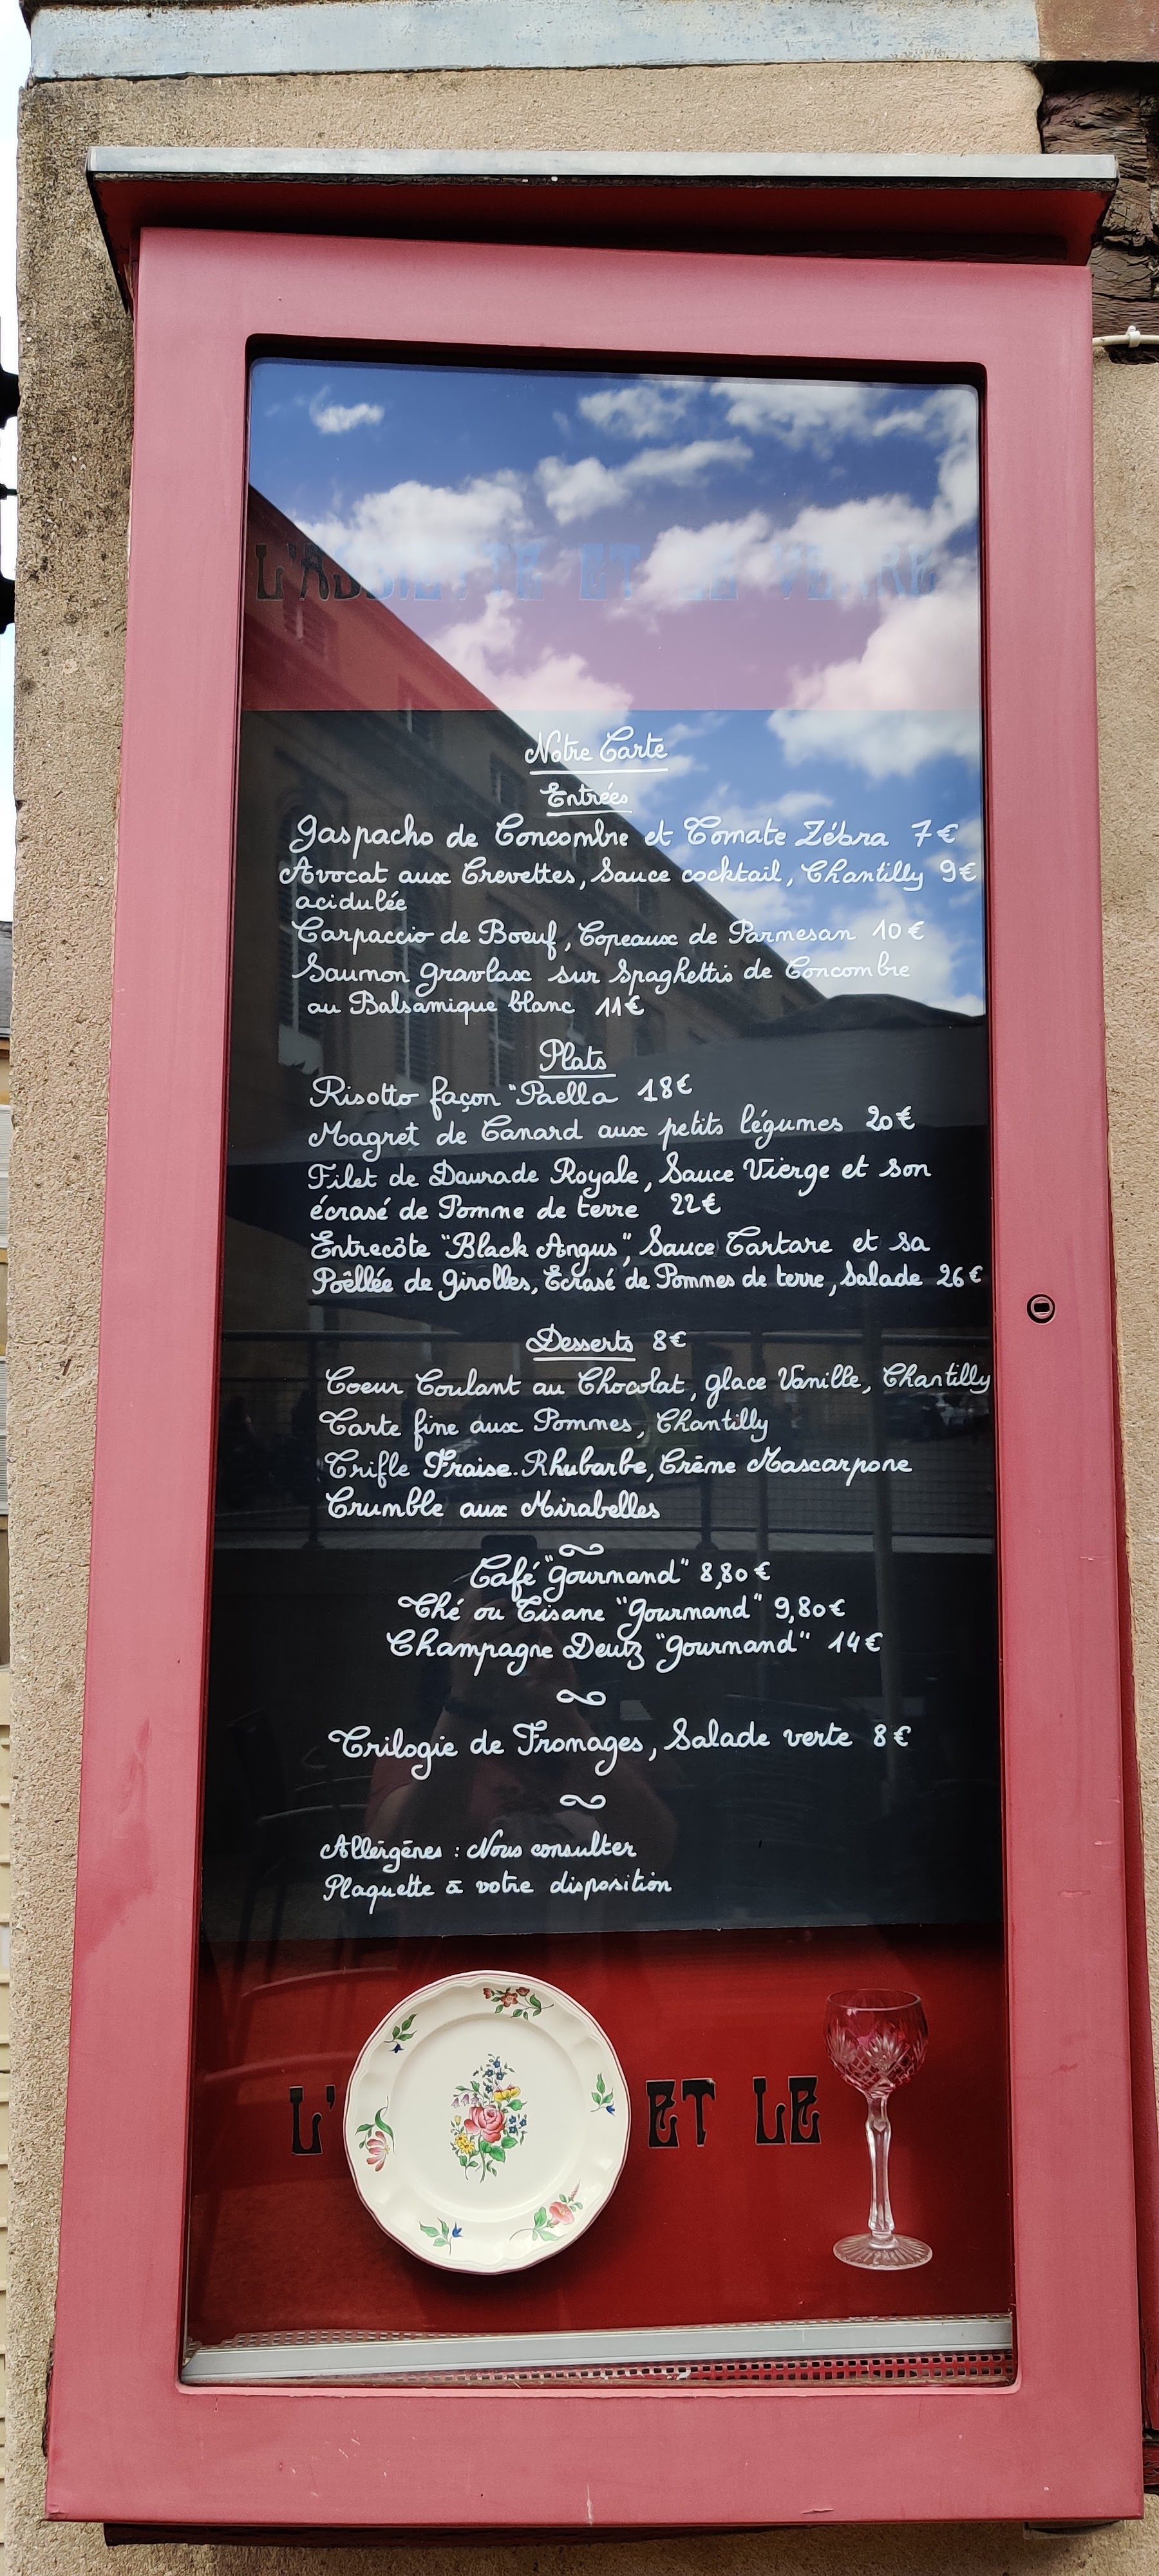 L'ASSIETTE ET LE VERRE
Notre Carte
Entrées
Gaspacho de Concombre et Tomate Zébra 7€
Avocat aux Crevettes, Sauce cocktail, Chantilly 9€
acidulée
Carpaccio de Boeuf, Copeaux de Parmesan 10€
Saumon gravlax sur Spaghettis de Concombre
au Balsamique blanc 11€
Plats
Risotto façon "Paella 18€
Magret de Canard aux petits légumes 20€
Filet de Daurade Royale, Sauce Vierge et son
écrasé de Pomme de terre 22€
Entrecôte "Black Angus", Sauce Tartare et sa
Poêllée de Girolles, Ecrasé de Pommes de terre, Salade 26€
Desserts 8€
Coeur Coulant au Chocolat, glace Vanille, Chantilly
Tarte fine aux Pommes, Chantilly
Trifle Fraise-Rhubarbe, Crème Mascarpone
Crumble aux Mirabelles
Café "gourmand" 8,80€
Thé ou Tisane "gourmand" 9,80€
Champagne Deutz "gourmand" 14€
Trilogie de Fromages, Salade verte 8€
Allergènes : Nous consulter
Plaquette à votre disposition
L' ET LE